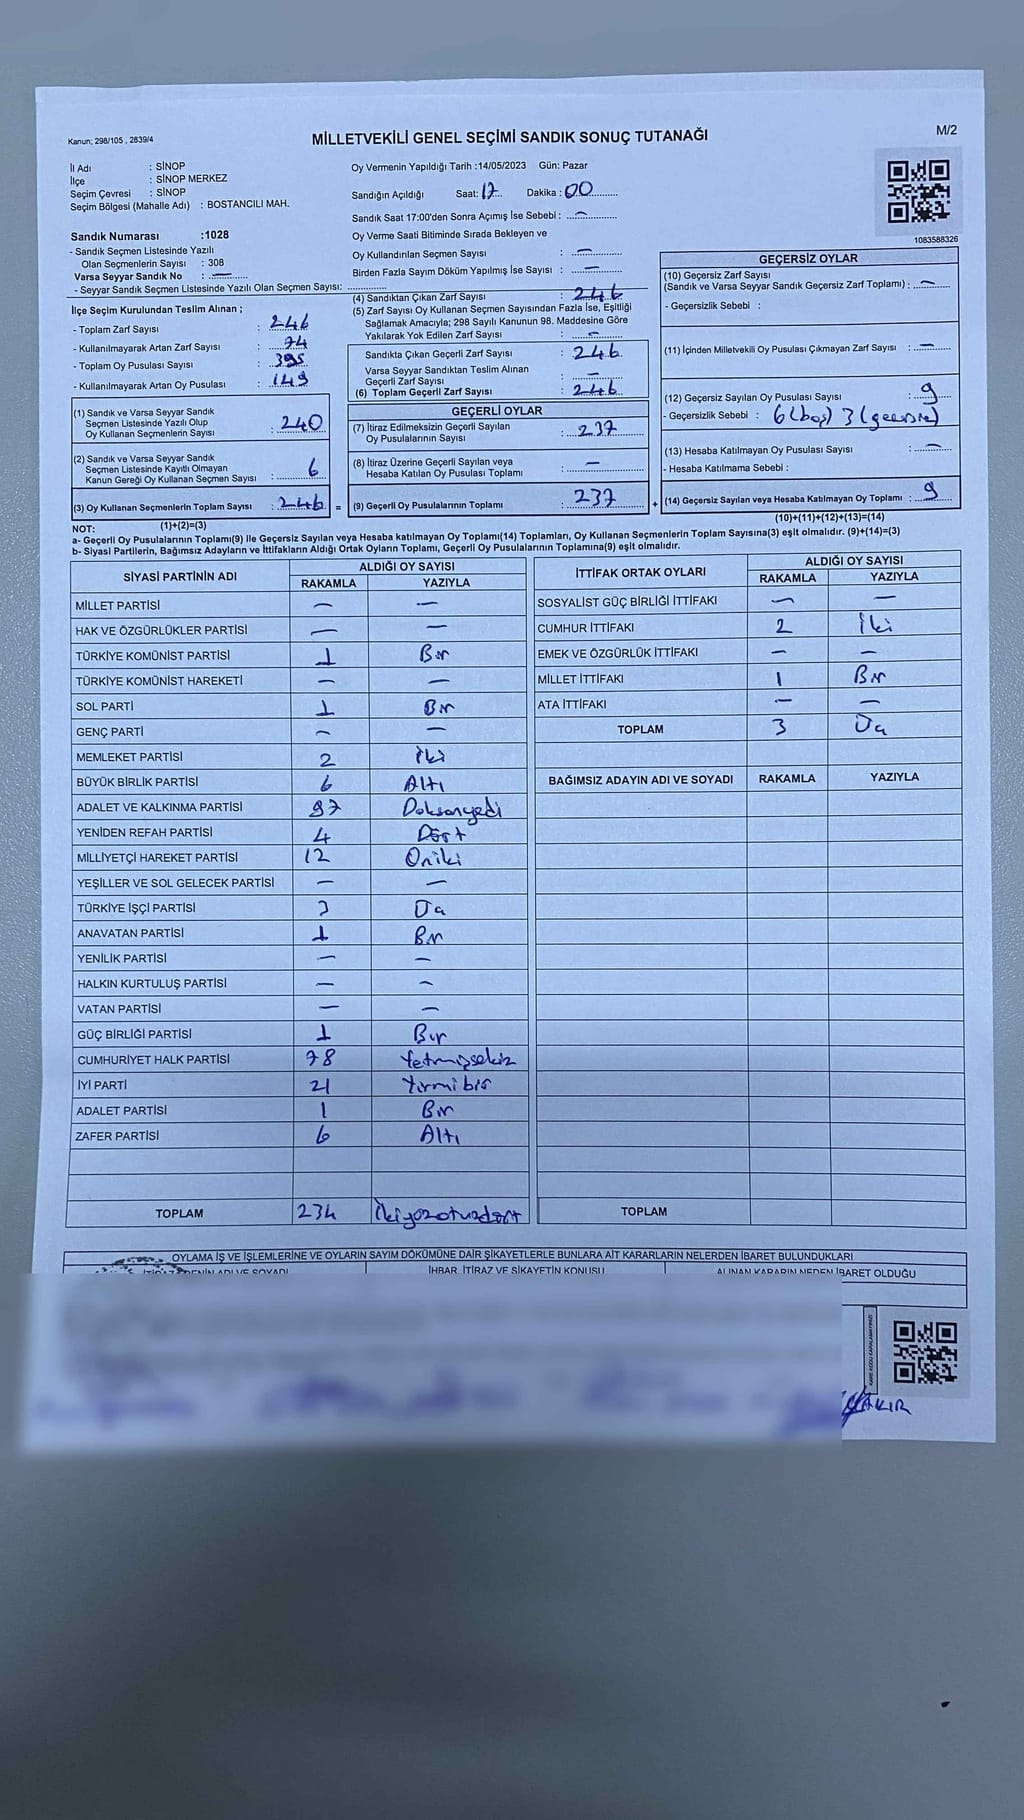 Kanun; 298/105 , 2839/4
MİLLETVEKİLİ GENEL SEÇİMİ SANDIK SONUÇ TUTANAĞI
M/2
İl Adı : SİNOP
İlçe : SİNOP MERKEZ
Seçim Çevresi : SİNOP
Seçim Bölgesi (Mahalle Adı) : BOSTANCILI MAH.
Sandık Numarası :1028
- Sandık Seçmen Listesinde Yazılı
Olan Seçmenlerin Sayısı : 308
Varsa Seyyar Sandık No : —
- Seyyar Sandık Seçmen Listesinde Yazılı Olan Seçmen Sayısı:
Oy Vermenin Yapıldığı Tarih :14/05/2023 Gün: Pazar
Sandığın Açıldığı Saat: 17 Dakika : 00
Sandık Saat 17:00'den Sonra Açımış İse Sebebi : —
Oy Verme Saati Bitiminde Sırada Bekleyen ve
Oy Kullandırılan Seçmen Sayısı : —
Birden Fazla Sayım Döküm Yapılmış İse Sayısı : —
1083588326
İlçe Seçim Kurulundan Teslim Alınan ;
- Toplam Zarf Sayısı : 246
- Kullanılmayarak Artan Zarf Sayısı : 74
- Toplam Oy Pusulası Sayısı : 395
- Kullanılmayarak Artan Oy Pusulası : 149
(1) Sandık ve Varsa Seyyar Sandık
Seçmen Listesinde Yazılı Olup
Oy Kullanan Seçmenlerin Sayısı : 240
(2) Sandık ve Varsa Seyyar Sandık
Seçmen Listesinde Kayıtlı Olmayan
Kanun Gereği Oy Kullanan Seçmen Sayısı : 6
(3) Oy Kullanan Seçmenlerin Toplam Sayısı : 246 =
(1)+(2)=(3)
(4) Sandıktan Çıkan Zarf Sayısı : 246
(5) Zarf Sayısı Oy Kullanan Seçmen Sayısından Fazla İse, Eşitliği
Sağlamak Amacıyla; 298 Sayılı Kanunun 98. Maddesine Göre
Yakılarak Yok Edilen Zarf Sayısı : —
Sandıkta Çıkan Geçerli Zarf Sayısı : 246
Varsa Seyyar Sandıktan Teslim Alınan
Geçerli Zarf Sayısı : —
(6) Toplam Geçerli Zarf Sayısı : 246
GEÇERLİ OYLAR
(7) İtiraz Edilmeksizin Geçerli Sayılan
Oy Pusulalarının Sayısı : 237
(8) İtiraz Üzerine Geçerli Sayılan veya
Hesaba Katılan Oy Pusulası Toplamı : —
(9) Geçerli Oy Pusulalarının Toplamı : 237 +
GEÇERSİZ OYLAR
(10) Geçersiz Zarf Sayısı
(Sandık ve Varsa Seyyar Sandık Geçersiz Zarf Toplamı) : —
- Geçersizlik Sebebi :
(11) İçinden Milletvekili Oy Pusulası Çıkmayan Zarf Sayısı : —
(12) Geçersiz Sayılan Oy Pusulası Sayısı : 9
- Geçersizlik Sebebi : 6 (boş) 3 (geçersiz)
(13) Hesaba Katılmayan Oy Pusulası Sayısı : —
- Hesaba Katılmama Sebebi :
(14) Geçersiz Sayılan veya Hesaba Katılmayan Oy Toplamı : 9
(10)+(11)+(12)+(13)=(14)
NOT:
a- Geçerli Oy Pusulalarının Toplamı(9) ile Geçersiz Sayılan veya Hesaba katılmayan Oy Toplamı(14) Toplamları, Oy Kullanan Seçmenlerin Toplam Sayısına(3) eşit olmalıdır. (9)+(14)=(3)
b- Siyasi Partilerin, Bağımsız Adayların ve İttifakların Aldığı Ortak Oyların Toplamı, Geçerli Oy Pusulalarının Toplamına(9) eşit olmalıdır.
SİYASİ PARTİNİN ADI ALDIĞI OY SAYISI
RAKAMLA YAZIYLA
MİLLET PARTİSİ — —
HAK VE ÖZGÜRLÜKLER PARTİSİ — —
TÜRKİYE KOMÜNİST PARTİSİ 1 Bir
TÜRKİYE KOMÜNİST HAREKETİ — —
SOL PARTİ 1 Bir
GENÇ PARTİ — —
MEMLEKET PARTİSİ 2 İki
BÜYÜK BİRLİK PARTİSİ 6 Altı
ADALET VE KALKINMA PARTİSİ 97 Doksanyedi
YENİDEN REFAH PARTİSİ 4 Dört
MİLLİYETÇİ HAREKET PARTİSİ 12 Oniki
YEŞİLLER VE SOL GELECEK PARTİSİ — —
TÜRKİYE İŞÇİ PARTİSİ 3 Üç
ANAVATAN PARTİSİ 1 Bir
YENİLİK PARTİSİ — —
HALKIN KURTULUŞ PARTİSİ — —
VATAN PARTİSİ — —
GÜÇ BİRLİĞİ PARTİSİ 1 Bir
CUMHURİYET HALK PARTİSİ 78 Yetmişsekiz
İYİ PARTİ 21 Yirmibir
ADALET PARTİSİ 1 Bir
ZAFER PARTİSİ 6 Altı
TOPLAM 234 İkiyüzotuzdört
İTTİFAK ORTAK OYLARI ALDIĞI OY SAYISI
RAKAMLA YAZIYLA
SOSYALİST GÜÇ BİRLİĞİ İTTİFAKI — —
CUMHUR İTTİFAKI 2 İki
EMEK VE ÖZGÜRLÜK İTTİFAKI — —
MİLLET İTTİFAKI 1 Bir
ATA İTTİFAKI — —
TOPLAM 3 Üç
BAĞIMSIZ ADAYIN ADI VE SOYADI RAKAMLA YAZIYLA
TOPLAM
OYLAMA İŞ VE İŞLEMLERİNE VE OYLARIN SAYIM DÖKÜMÜNE DAİR ŞİKAYETLERLE BUNLARA AİT KARARLARIN NELERDEN İBARET BULUNDUKLARI
İTİRAZ EDENİN ADI VE SOYADI İHBAR, İTİRAZ VE ŞİKAYETİN KONUSU ALINAN KARARIN NEDEN İBARET OLDUĞU